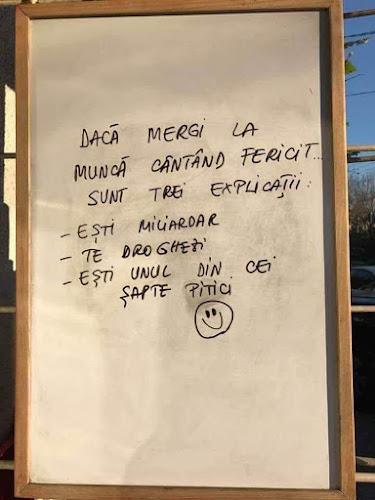 DACĂ MERGI LA
MUNCĂ CÂNTÂND FERICIT...
SUNT TREI EXPLICAȚII:
- EȘTI MILIARDAR
- TE DROGHEZI
- EȘTI UNUL DIN CEI
ȘAPTE PITICI